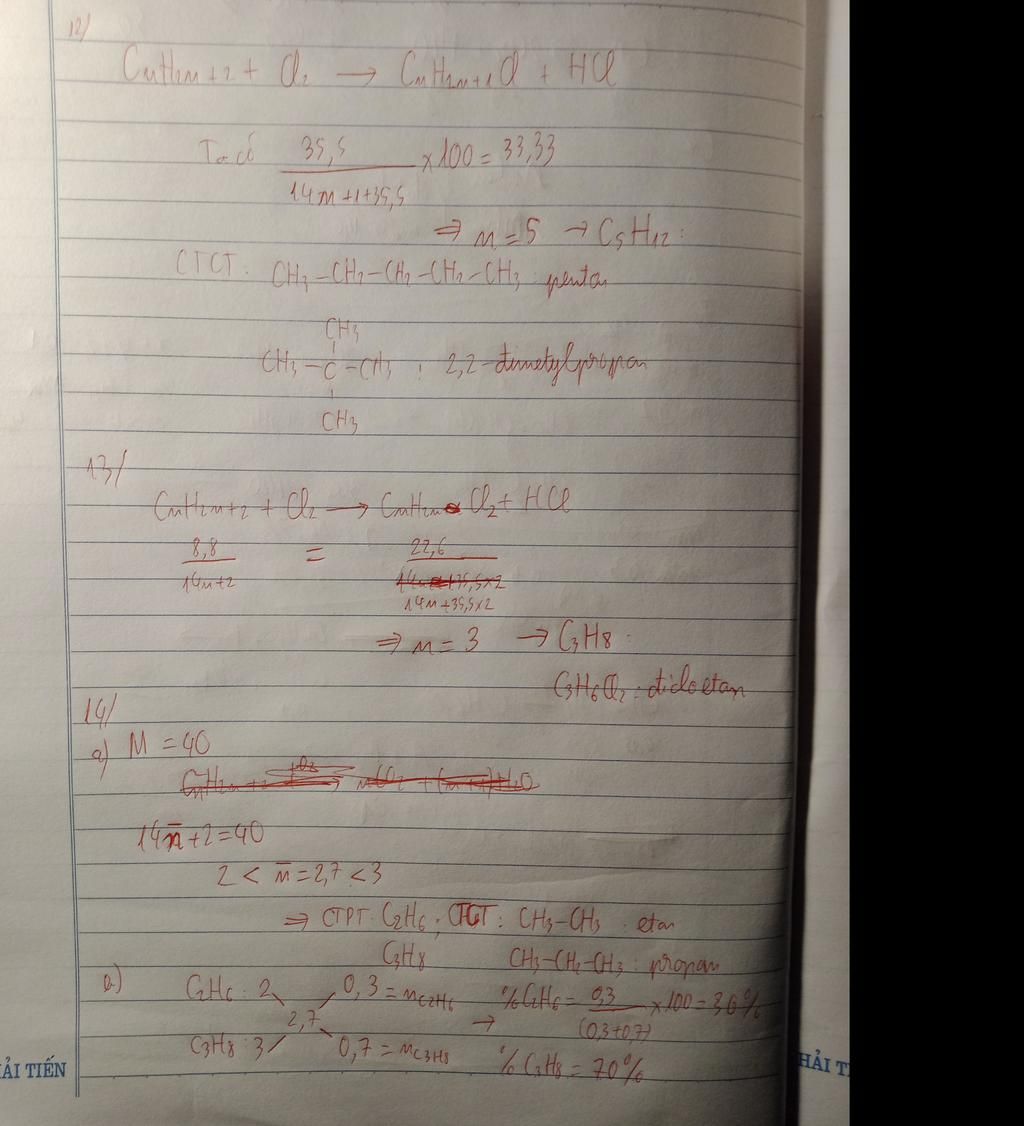 12/
CnH2n+2 + Cl2 → CnH2n+1Cl + HCl
Ta có 35,5 / 14n+1+35,5 ×100 = 33,33
⇒ n = 5 → C5H12:
CTCT: CH3–CH2–CH2–CH2–CH3: pentan
CH3
CH3–C–CH3 : 2,2-đimetylpropan
CH3
13/
CnH2n+2 + Cl2 → CnH2nCl2 + HCl
8,8 / 14n+2 = 22,6 / 14n+35,5×2
⇒ n = 3 → C3H8:
C3H6Cl2: điclo etan
14/
a) M = 40
14n̅+2=40
2 < n̅ = 2,7 < 3
⇒ CTPT: C2H6; CTCT: CH3–CH3: etan
C3H8 CH3–CH2–CH3: propan
C2H6: 2 0,3 = nC2H6 %C2H6 = 0,3 / (0,3+0,7) ×100 = 30%
2,7 →
C3H8: 3 0,7 = nC3H8 %C3H8 = 70%
ẢI TIẾN
HẢI T